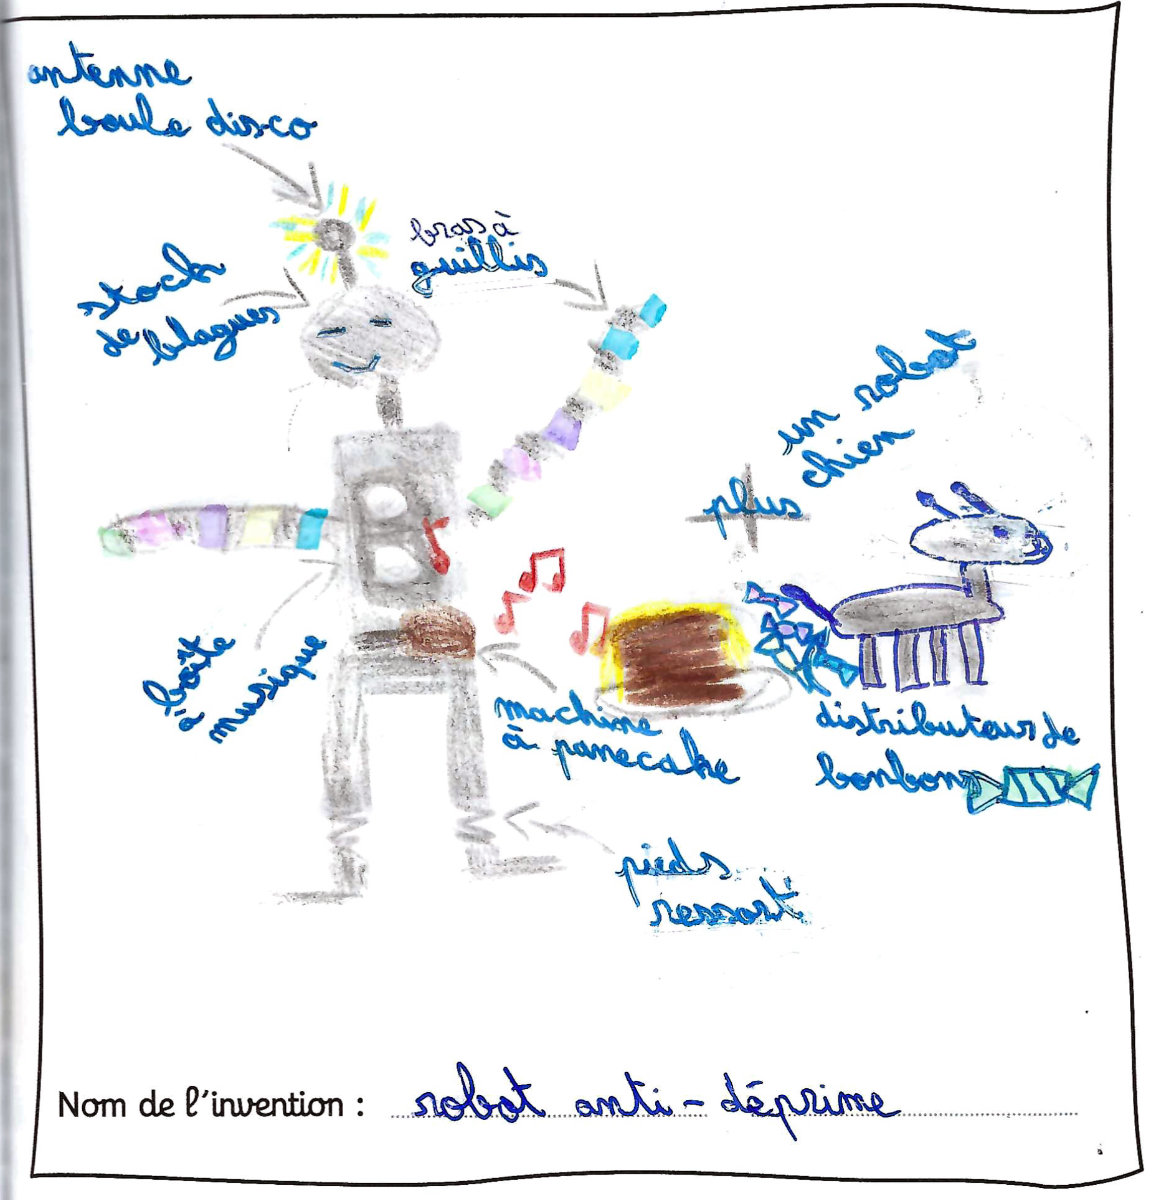 antenne
boule disco
bras à
guillis
stock
de blagues
un robot
chien
plus
boîte
à
musique
machine
à panecake
distributeur de
bonbons
pieds
ressort
Nom de l'invention : robot anti-déprime